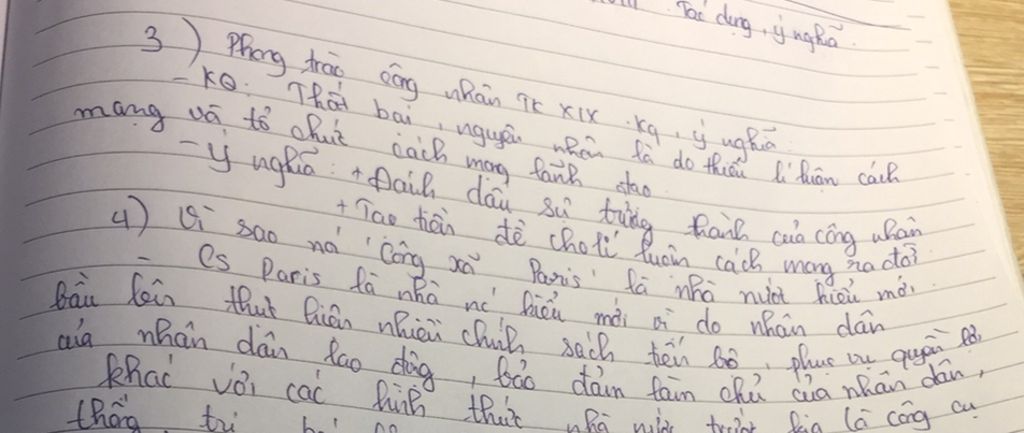 Tác dụng, ý nghĩa.
3) Phong trào công nhân TK XIX. Kq, ý nghĩa.
- KQ: Thất bại, nguyên nhân là do thiếu lí luận cách
mạng và tổ chức cách mạng lãnh đạo.
- Ý nghĩa: + Đánh dấu sự trưởng thành của công nhân
+ Tạo tiền đề cho lí luận cách mạng ra đời
4) Vì sao nói "Công xã Paris" là nhà nước kiểu mới.
- Cs Paris là nhà nc kiểu mới vì do nhân dân
bầu lên thực hiện nhiều chính sách tiến bộ, phục vụ quyền lợi
của nhân dân lao động, bảo đảm làm chủ của nhân dân,
khác với các hình thức nhà nước trước kia là công cụ
thống trị